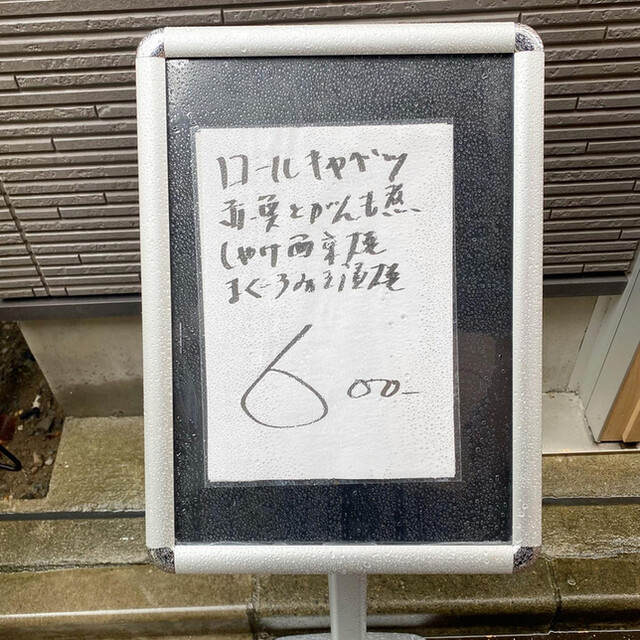 ロールキャベツ
青菜とがんも煮
しゃけ西京焼
まぐろみそ漬焼
600-